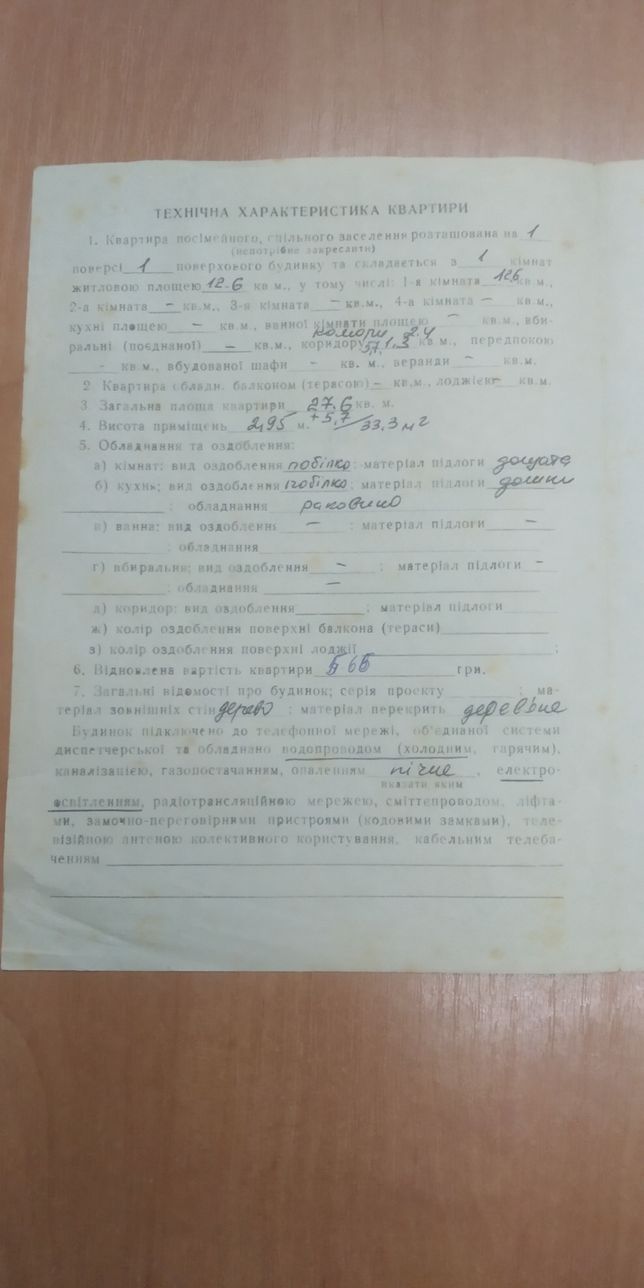 ТЕХНІЧНА ХАРАКТЕРИСТИКА КВАРТИРИ
1. Квартира посімейного, спільного заселення розташована на 1
(непотрібне закреслити)
поверсі 1 поверхового будинку та складається з 1 кімнат
житловою площею 12.6 кв м., у тому числі: 1-я кімната 12.6 кв м.,
2-а кімната – кв.м., 3-я кімната – кв.м., 4-а кімната – кв м.,
кухні площею – кв.м., ванної кімнати площею – кв.м., вби-
комори 2.4
ральні (поєднаної) – кв.м., коридору 1,3 кв м., передпокою
– кв м., вбудованої шафи – кв. м., веранди – кв м.
2. Квартира обладн. балконом (терасою) – кв.м., лоджією – кв.м.
3. Загальна площа квартири 27.6 кв. м.
4. Висота приміщень 2,95 м. +5,7 33,3 м2
5. Обладнання та оздоблення:
а) кімнат: вид оздоблення побілка: матеріал підлоги дощата
б) кухнь; вид оздоблення побілка; матеріал підлоги дошки
; обладнання раковина
в) ванна: вид оздоблення – : матеріал підлоги –
: обладнання
г) вбиральня; вид оздоблення – ; матеріал підлоги –
: обладнання –
д) коридор: вид оздоблення ; матеріал підлоги
ж) колір оздоблення поверхні балкона (тераси)
з) колір оздоблення поверхні лоджії ;
6. Відновлена вартість квартири 565 грн.
7. Загальні відомості про будинок; серія проекту ; ма-
теріал зовнішніх стін дерево : матеріал перекрить
Будинок підключено до телефонної мережі, об'єднаної системи
диспетчерської та обладнано водопроводом (холодним, гарячим),
каналізацією, газопостачанням, опаленням пічне , електро-
вказати яким
освітленням, радіотрансляційною мережею, сміттєпроводом, ліфта-
ми, замочно-переговірними пристроями (кодовими замками), теле-
візійною антеною колективного користування, кабельним телеба-
ченням